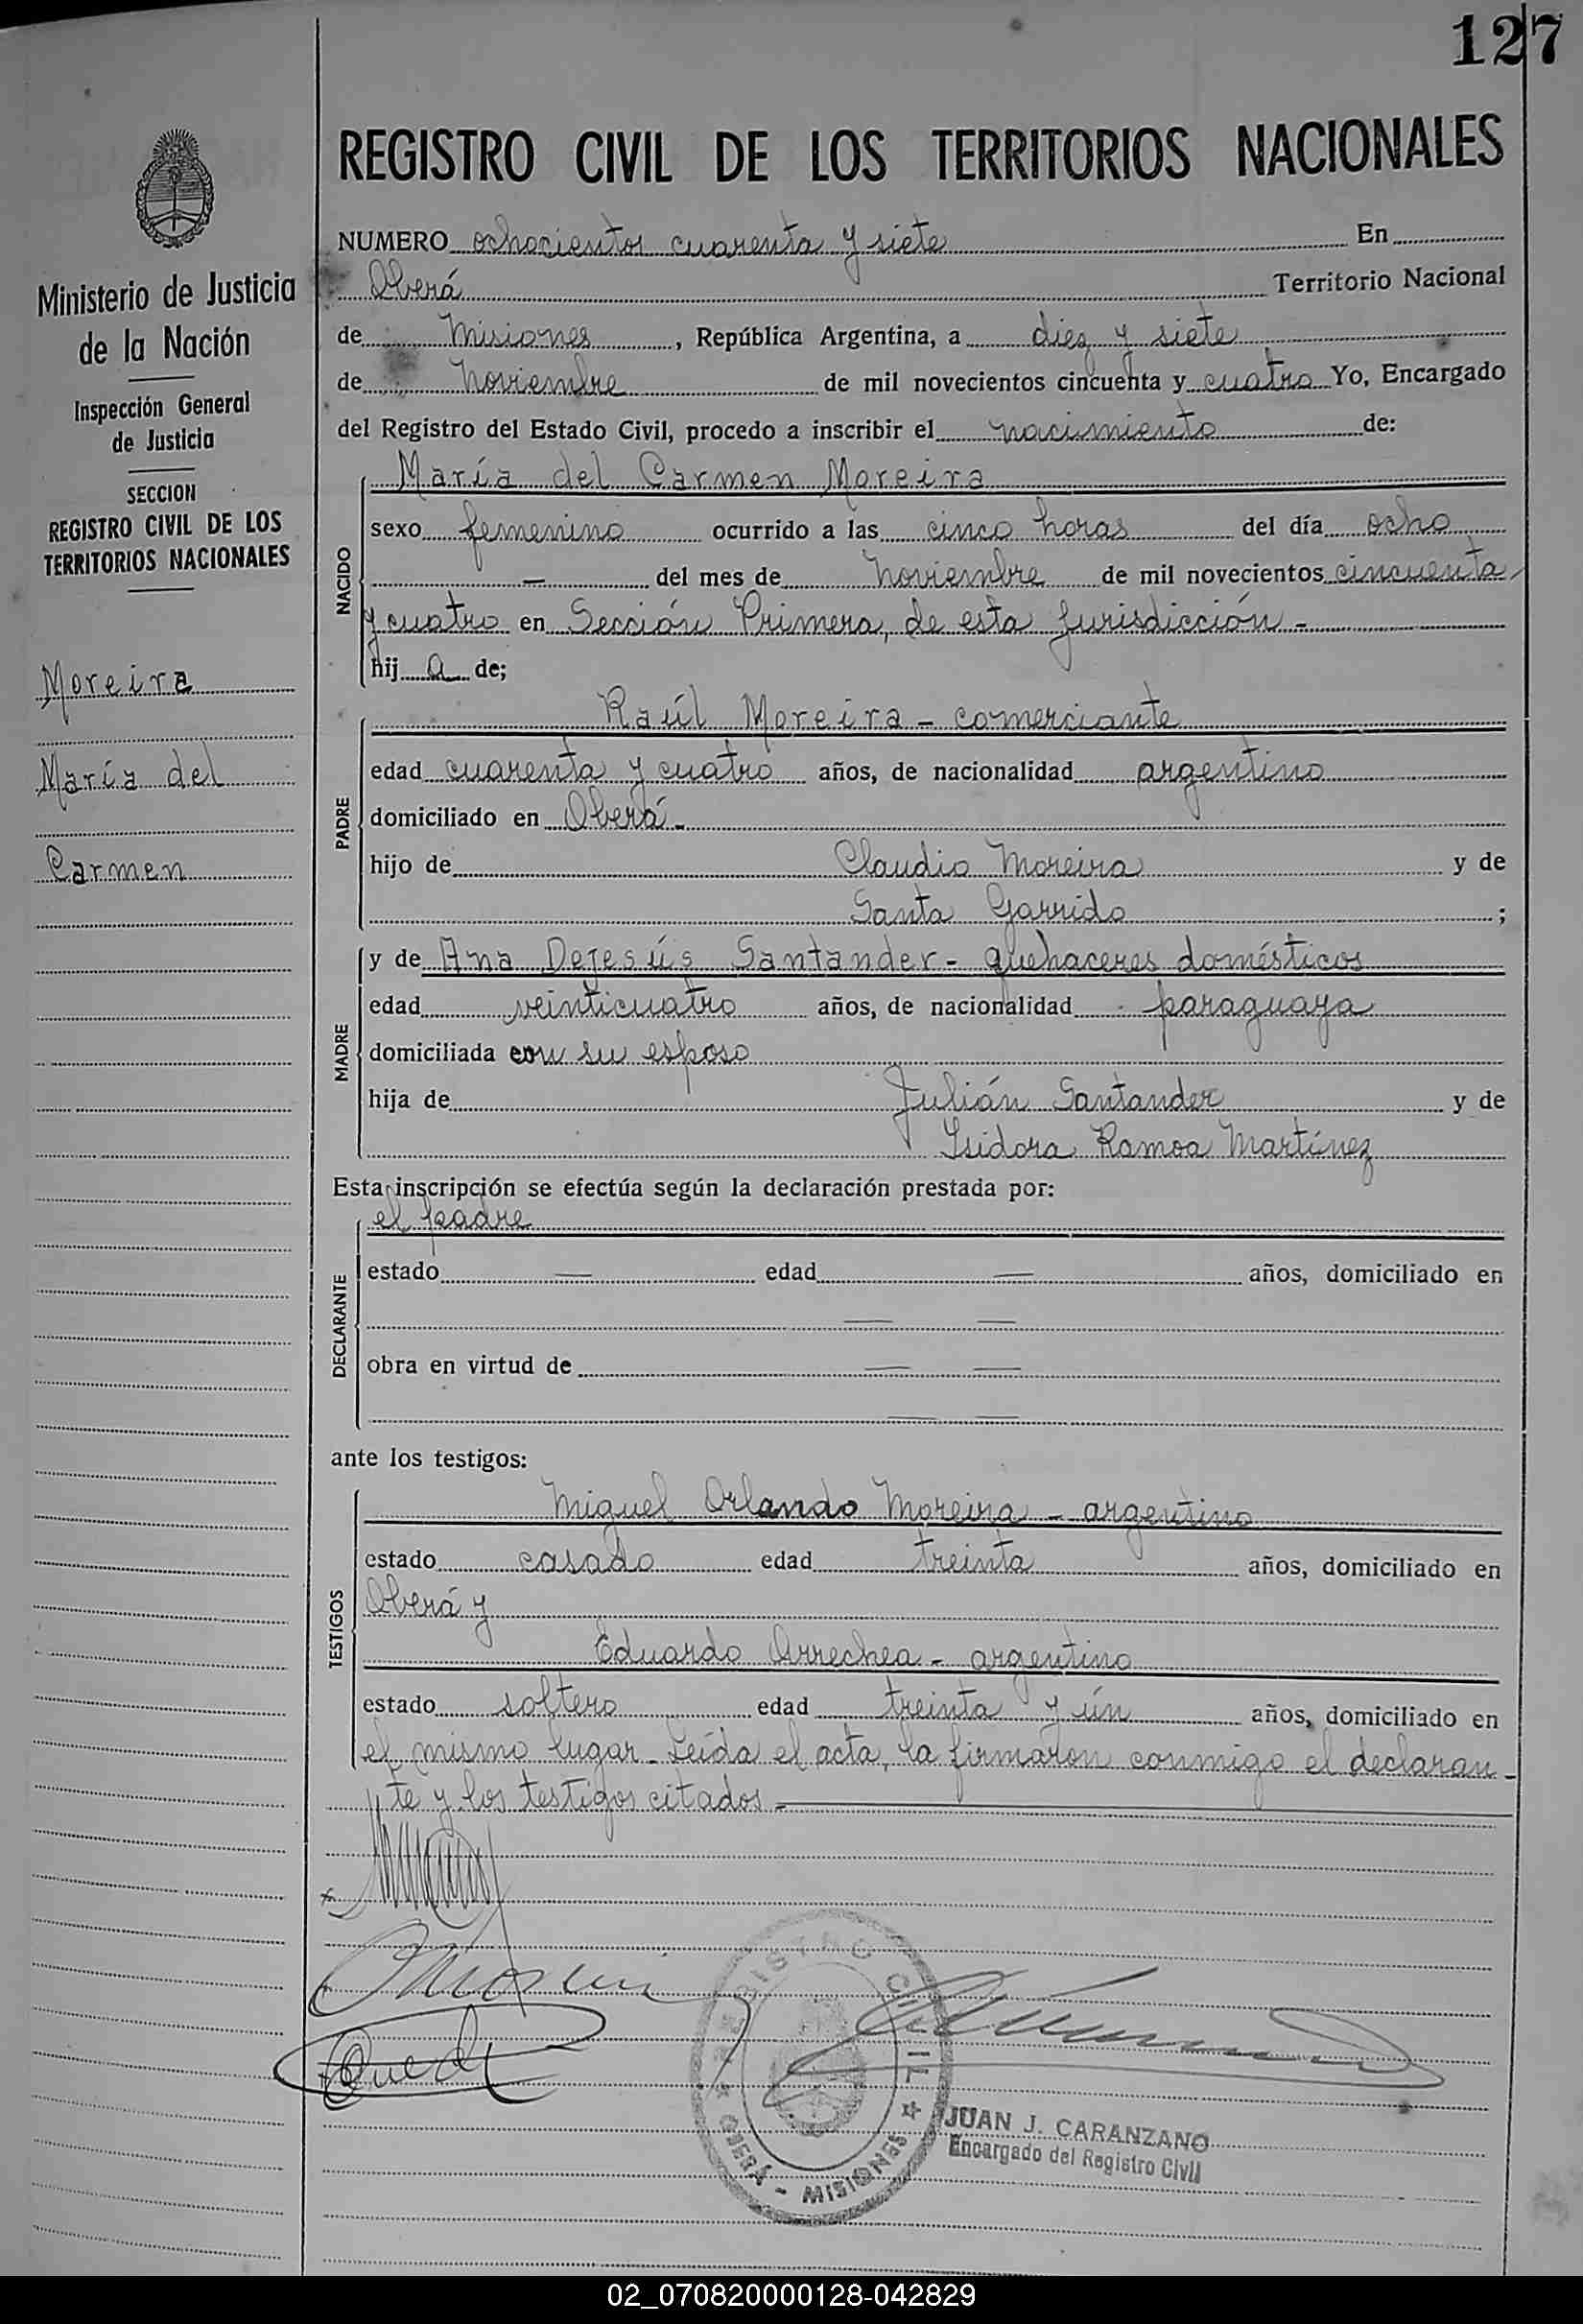 127
REGISTRO CIVIL DE LOS TERRITORIOS NACIONALES
Ministerio de Justicia
de la Nación
Inspección General
de Justicia
SECCION
REGISTRO CIVIL DE LOS
TERRITORIOS NACIONALES
Moreira
María del
Carmen
NUMERO ochocientos cuarenta y siete En
Oberá Territorio Nacional
de Misiones, República Argentina, a diez y siete
de Noviembre de mil novecientos cincuenta y cuatro Yo, Encargado
del Registro del Estado Civil, procedo a inscribir el nacimiento de:
NACIDO
María del Carmen Moreira
sexo femenino ocurrido a las cinco horas del día ocho
— del mes de Noviembre de mil novecientos cincuenta
y cuatro en Sección Primera, de esta Jurisdicción -
hij a de;
PADRE
Raúl Moreira - comerciante
edad cuarenta y cuatro años, de nacionalidad argentino
domiciliado en Oberá -
hijo de Claudio Moreira y de
Santa Garrido ;
MADRE
y de Ana Dejesús Santander - quehaceres domésticos
edad veinticuatro años, de nacionalidad paraguaya
domiciliada con su esposo
hija de Julián Santander y de
Isidora Ramoa Martínez
Esta inscripción se efectúa según la declaración prestada por:
DECLARANTE
el padre
estado — edad — años, domiciliado en
— —
obra en virtud de — —
— —
ante los testigos:
TESTIGOS
Miguel Orlando Moreira - argentino
estado casado edad treinta años, domiciliado en
Oberá y
Eduardo Arrechea - argentino
estado soltero edad treinta y ún años, domiciliado en
el mismo lugar - Leída el acta, la firmaron conmigo el declaran-
te y los testigos citados -
REGISTRO CIVIL
OBERÁ - MISIONES
JUAN J. CARANZANO
Encargado del Registro Civil
02_070820000128-042829